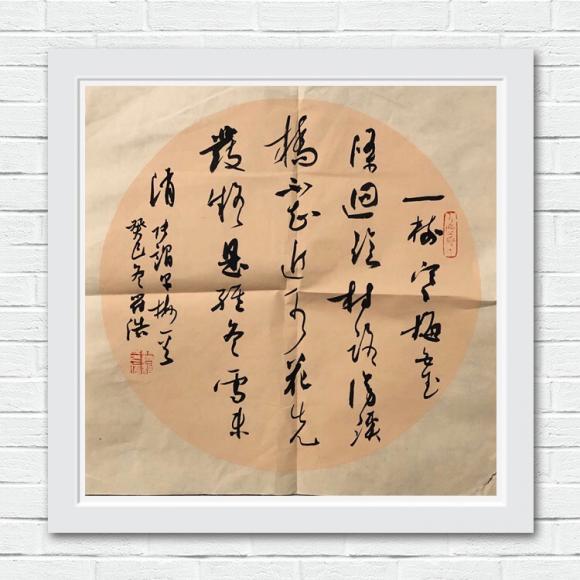 一樹寒梅白玉
條迴臨村路傍溪
橋不知近水花先
發疑是經冬雪未
消
張謂早梅一首
癸巳冬浩